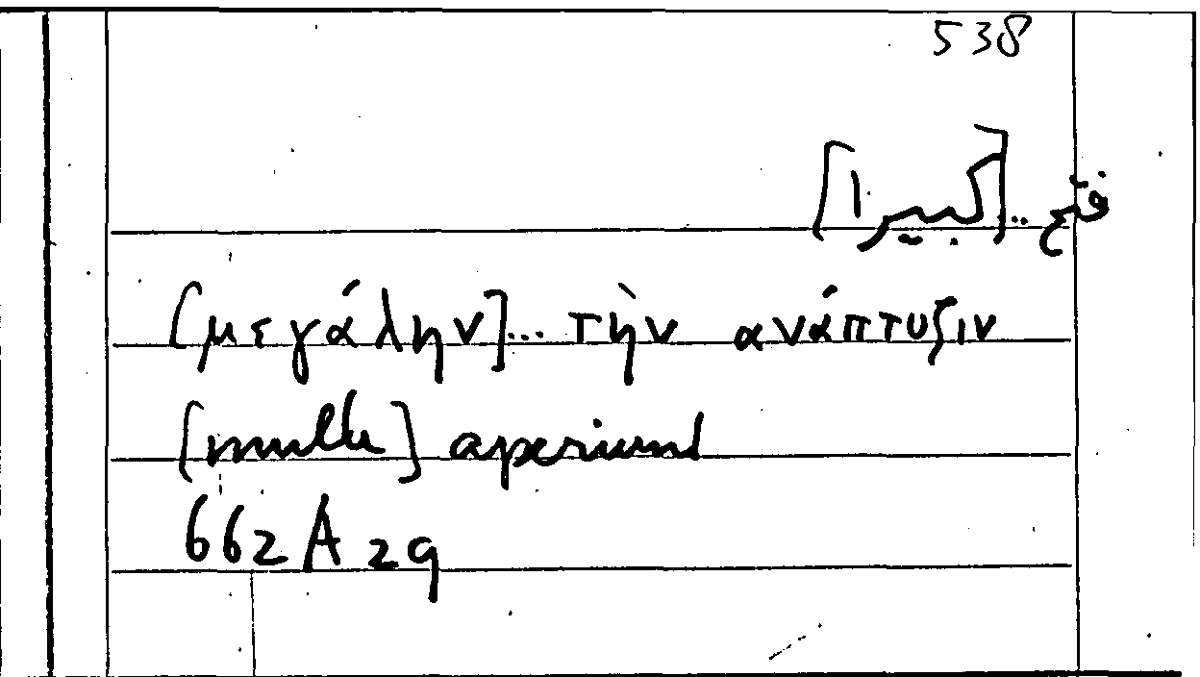 538
فتح ..[كبيرا]
[μεγάλην]... τὴν ανάπτυξιν
[multe] aperiunt
662 A 29